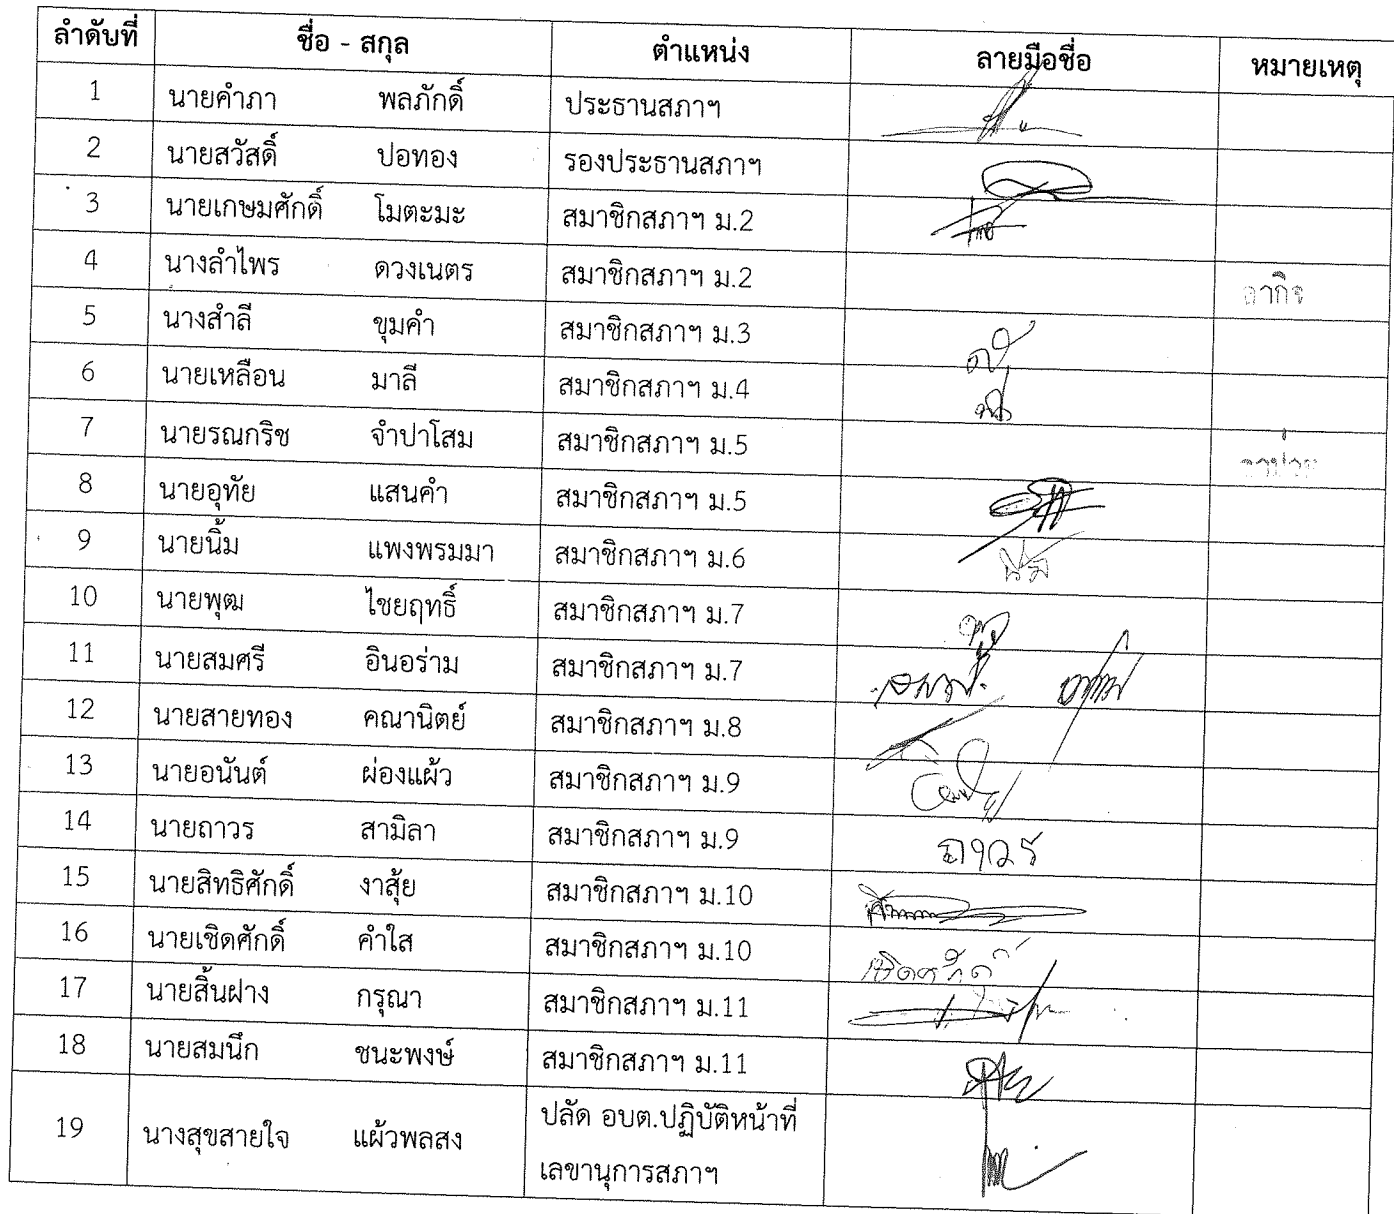 ลำดับที่ ชื่อ - สกุล ตำแหน่ง ลายมือชื่อ หมายเหตุ
1 นายคำภา พลภักดิ์ ประธานสภาฯ
2 นายสวัสดิ์ ปอทอง รองประธานสภาฯ
3 นายเกษมศักดิ์ โมตะมะ สมาชิกสภาฯ ม.2
4 นางลำไพร ดวงเนตร สมาชิกสภาฯ ม.2 ลากิจ
5 นางสำลี ขุมคำ สมาชิกสภาฯ ม.3
6 นายเหลือน มาลี สมาชิกสภาฯ ม.4
7 นายรณกริช จำปาโสม สมาชิกสภาฯ ม.5 ลาป่วย
8 นายอุทัย แสนคำ สมาชิกสภาฯ ม.5
9 นายนิ้ม แพงพรมมา สมาชิกสภาฯ ม.6
10 นายพุฒ ไชยฤทธิ์ สมาชิกสภาฯ ม.7
11 นายสมศรี อินอร่าม สมาชิกสภาฯ ม.7
12 นายสายทอง คณานิตย์ สมาชิกสภาฯ ม.8
13 นายอนันต์ ผ่องแผ้ว สมาชิกสภาฯ ม.9
14 นายถาวร สามิลา สมาชิกสภาฯ ม.9 ถาวร
15 นายสิทธิศักดิ์ งาสุ้ย สมาชิกสภาฯ ม.10
16 นายเชิดศักดิ์ คำใส สมาชิกสภาฯ ม.10 เชิดศักดิ์
17 นายสิ้นฝาง กรุณา สมาชิกสภาฯ ม.11
18 นายสมนึก ชนะพงษ์ สมาชิกสภาฯ ม.11
19 นางสุขสายใจ แผ้วพลสง ปลัด อบต.ปฏิบัติหน้าที่
เลขานุการสภาฯ